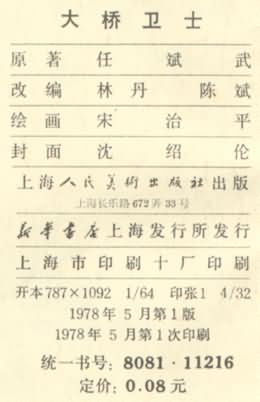 大桥卫士
原著 任斌武
改编 林丹 陈斌
绘画 宋治平
封面 沈绍伦
上海人民美術出版社出版
上海长乐路672弄33号
新华書店上海发行所发行
上海市印刷十厂印刷
开本787×1092 1/64 印张1 4/32
1978年5月第1版
1978年5月第1次印刷
统一书号：8081·11216
定价：0.08元